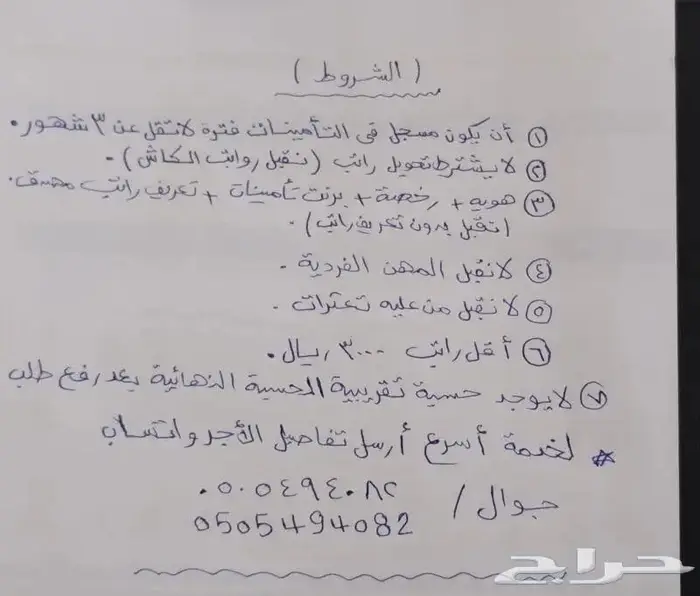 ( الشروط )
① أن يكون مسجل في التأمينات فترة لا تقل عن ٣ شهور.
② لا يشترط تحويل راتب (نقبل رواتب الكاش).
③ هويه + رخصة + برنت تأمينات + تعريف راتب مصدق.
(نقبل بدون تعريف راتب).
④ لا نقبل المهن الفردية.
⑤ لا نقبل من عليه تعثرات.
⑥ أقل راتب ٣٠٠٠ ريال.
⑦ لا يوجد حسبة تقريبية الحسبة النهائية بعد رفع طلب
* لخدمة أسرع أرسل تفاصيل الأجر واتساب
جوال / ٠٥٠٥٤٩٤٠٨٢
0505494082
حراج